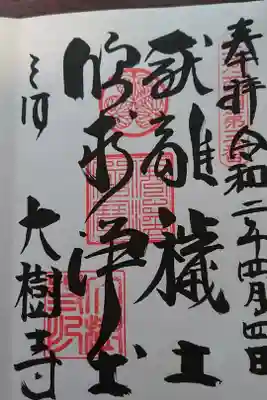 奉拝 令和二年四月四日
厭離穢土
欣求浄土
三河 大樹寺